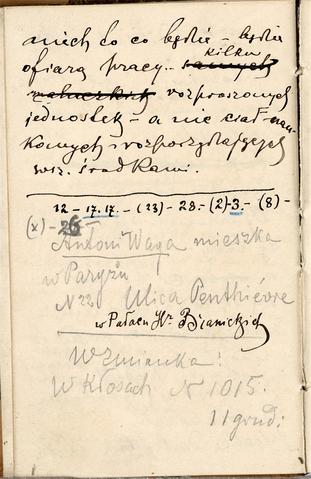 niech co co będzie – będzie
ofiarą pracy.. kilku
rozproszonych
jednostek – a nie ciał nau-
kowych rozporządzających
wsz. środkami.
12 – 17.17. – (23) – 28. – (2) – 3. – (8) –
(x) – 26 –
Antoni Waga mieszka
w Paryżu
N 22 Ulica Penthièvre
w Pałacu Hr. Branickich
Wzmianka:
W Kłosach N 1015.
11 grud: